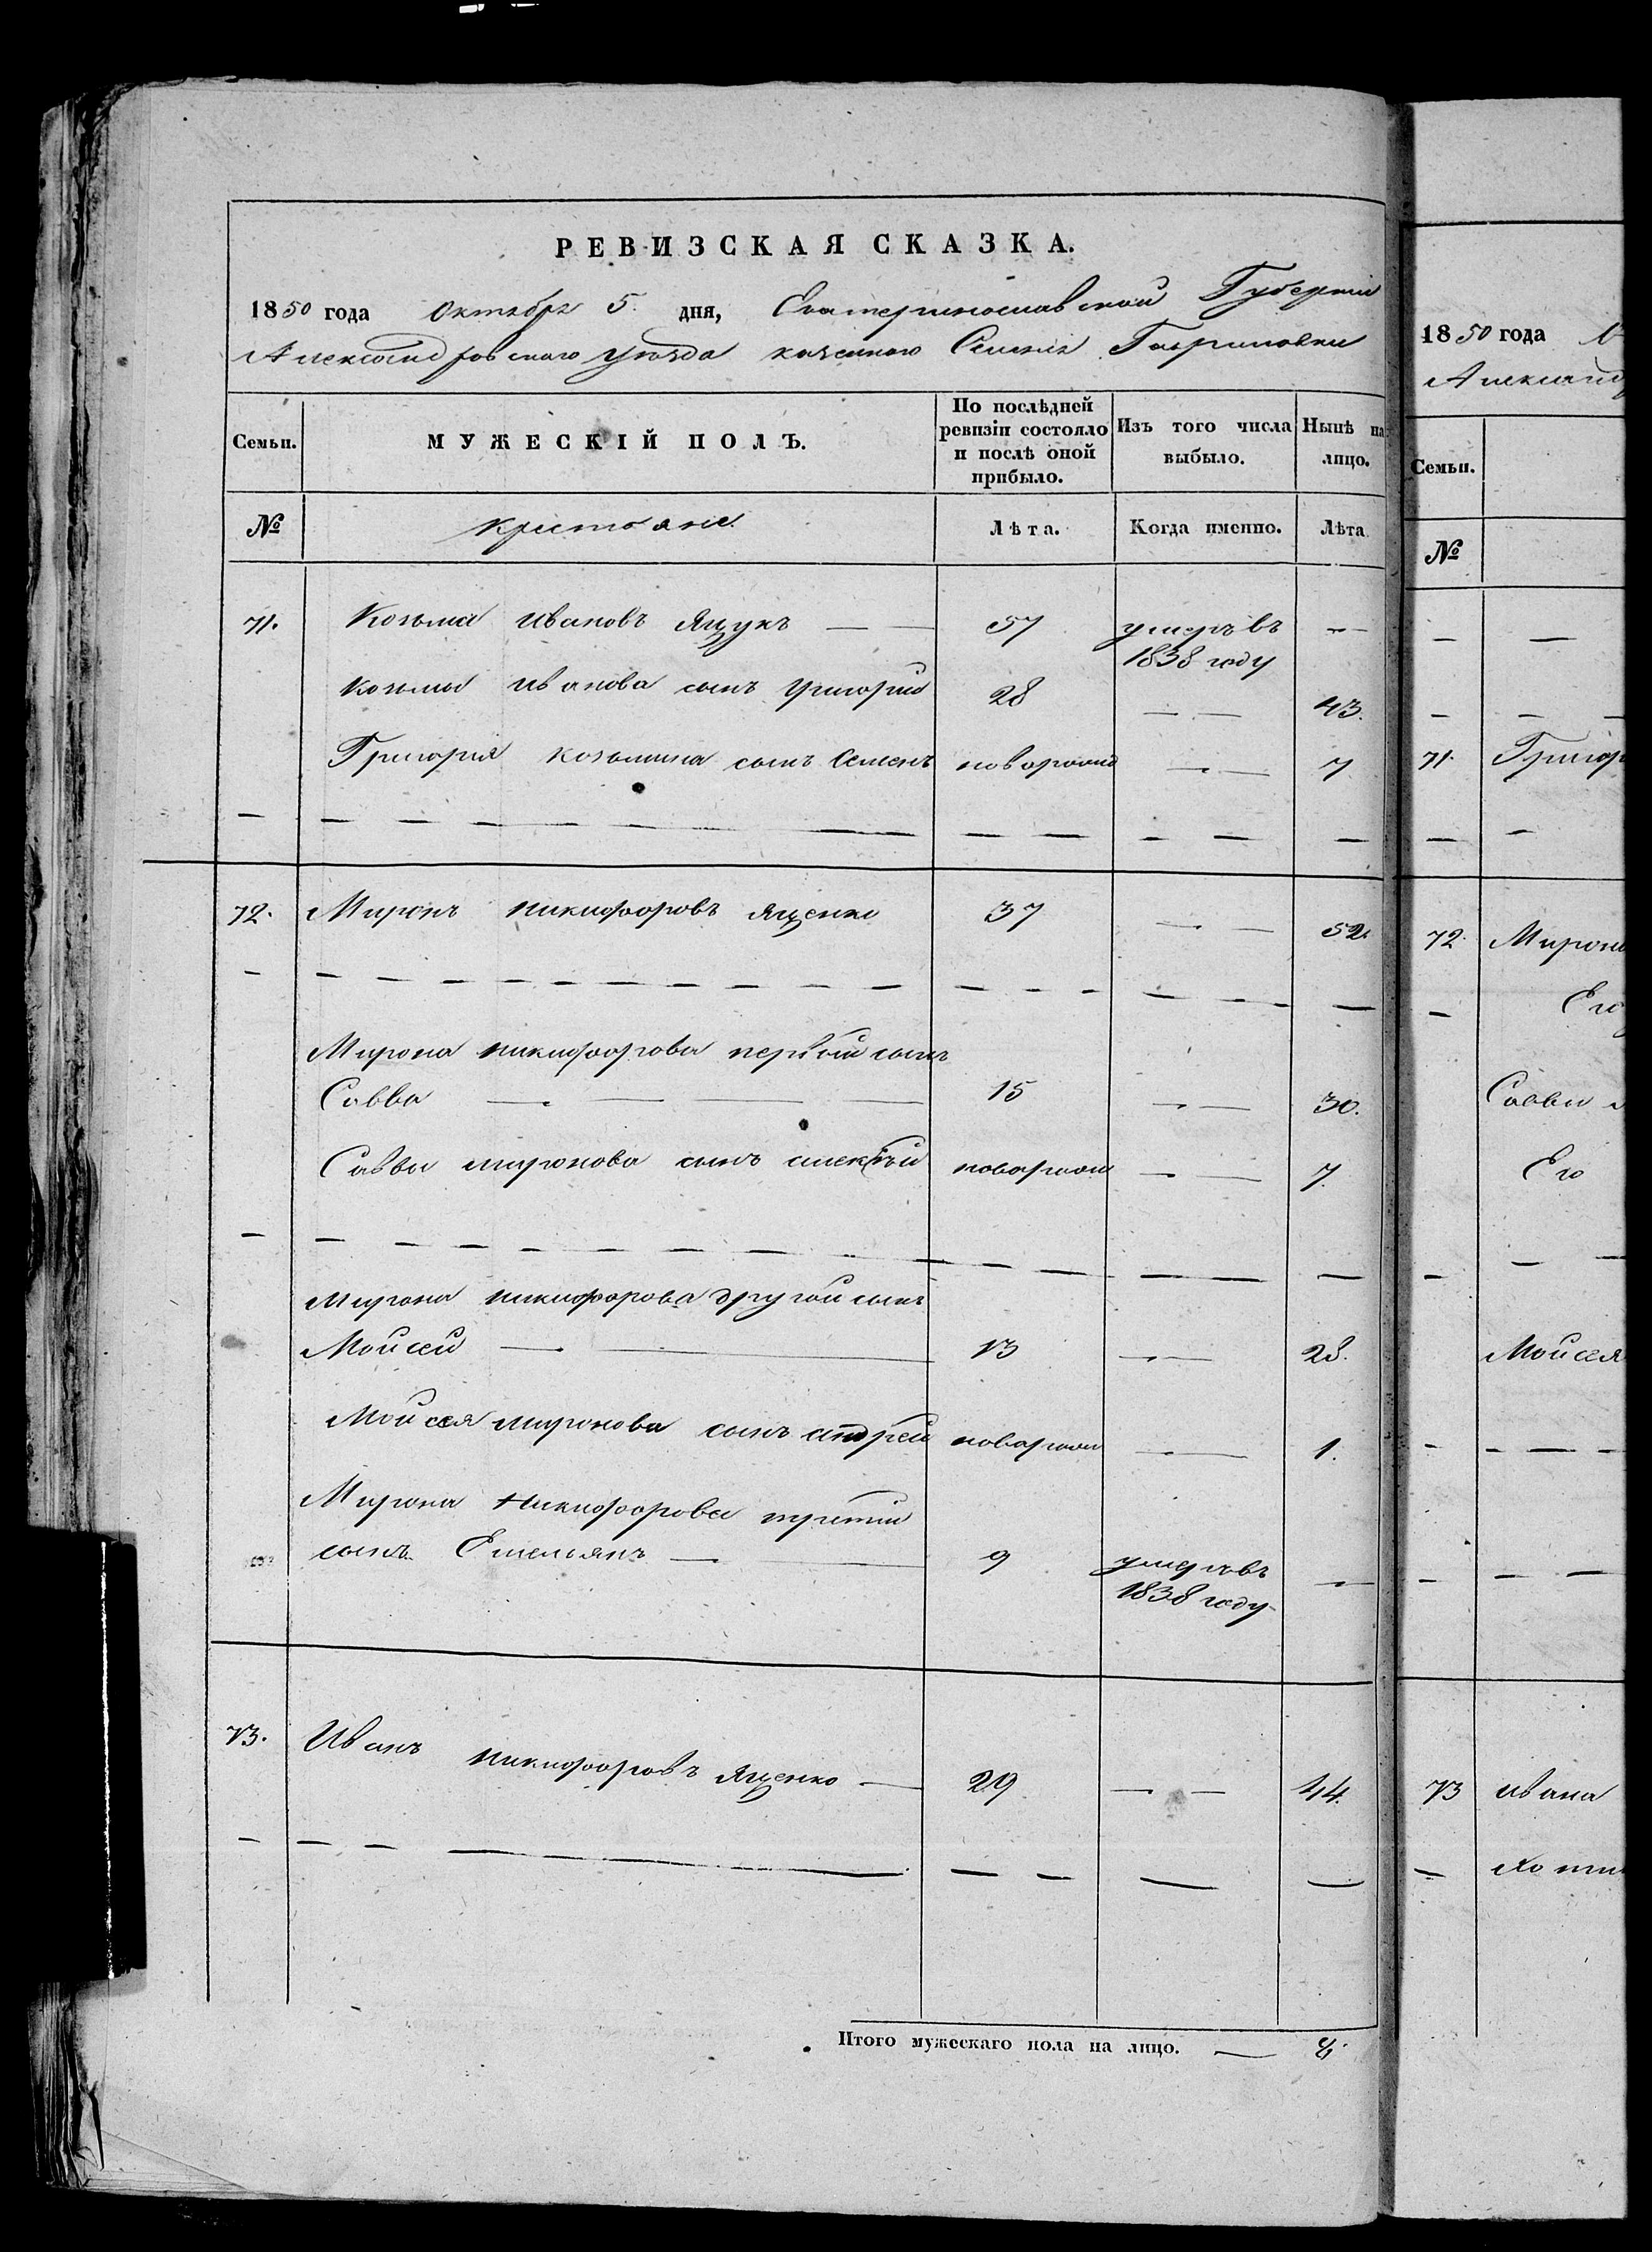 РЕВИЗСКАЯ СКАЗКА.
1850 года Октября 5. дня, Екатеринославской Губерніи
Александровскаго уѣзда казеннаго Селенія Гавриловки
Семьи.
МУЖЕСКІЙ ПОЛЪ.
По послѣдней ревизіи состояло и послѣ оной прибыло.
Изъ того числа выбыло.
Нынѣ на лицо.
№
крестьяне.
Лѣта.
Когда именно.
Лѣта
71. Козьма Ивановъ Ящукъ — — 57 умеръ въ 1838 году —
Козьмы Иванова сынъ Григорий 28 — — 43.
Григория Козьмина сынъ Семенъ новорожд — — 7
72. Миронъ Никифоровъ Ященко 37 — — 52.
Мирона Никифорова первый сынъ
Савва — — — — 15 — — 30.
Саввы Миронова сынъ Алексѣй новорожд — — 7.
Мирона Никифорова другой сынъ
Мойсей — — 13 — — 28.
Мойсея Миронова сынъ Андрей новорожд — 1.
Мирона Никифорова третий
сынъ Емельянъ — — 9 умеръ въ 1838 году —
73. Иванъ Никифоровъ Ященко — 29 — — 44.
Итого мужескаго пола на лицо. — 8.
1850 года
Александ
Семьи.
№
71. Григор
72. Мирона
Его
Саввы
Его
Мойсея
73 Ивана